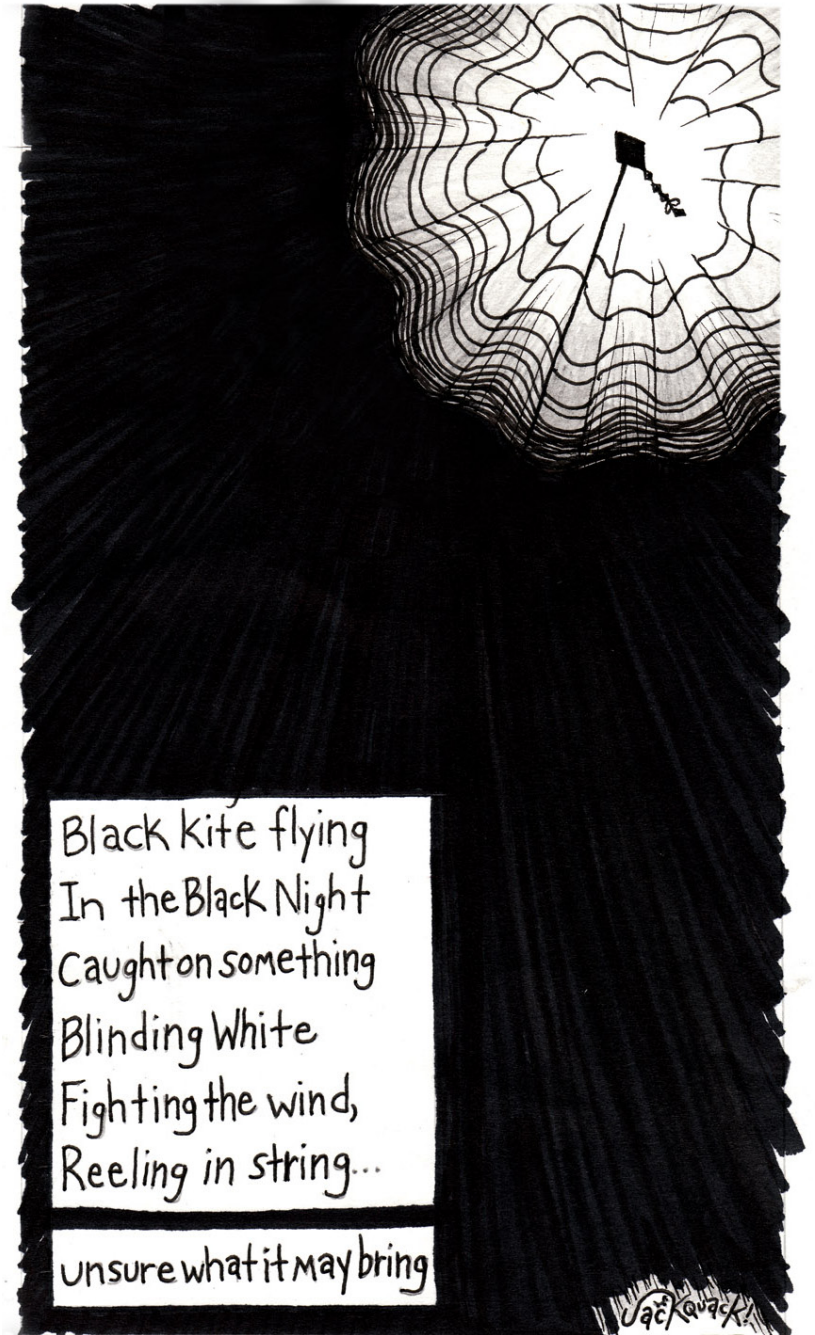 Black Kite flying
In the Black Night
Caught on something
Blinding White
Fighting the wind,
Reeling in string...
unsure what it may bring
JackQuack!